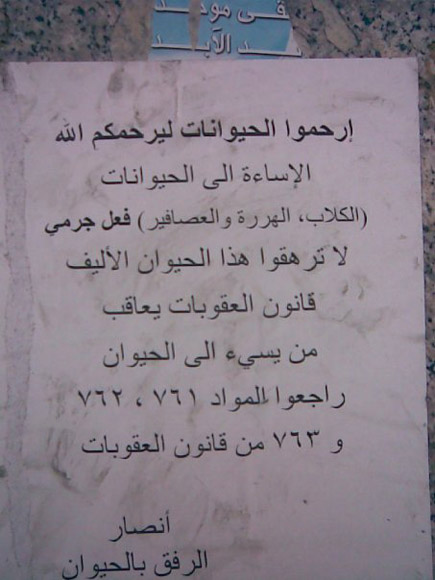 إرحموا الحيوانات ليرحمكم الله
الإساءة الى الحيوانات
(الكلاب، الهررة والعصافير) فعل جرمي
لا ترهقوا هذا الحيوان الأليف
قانون العقوبات يعاقب
من يسيء الى الحيوان
راجعوا المواد ٧٦١ ، ٧٦٢
و ٧٦٣ من قانون العقوبات
أنصار
الرفق بالحيوان